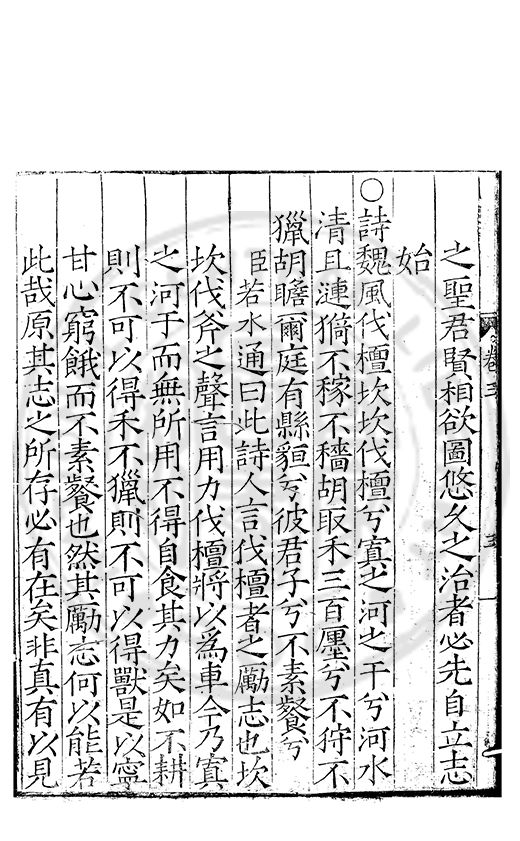 之聖君賢相欲圖悠久之治者必先自立志
始
○詩魏風伐檀坎坎伐檀兮寘之河之干兮河水
清且漣猗不稼不穡胡取禾三百廛兮不狩不
獵胡瞻爾庭有縣貆兮彼君子兮不素餐兮
臣若水通曰此詩人言伐檀者之勵志也坎
坎伐斧之聲言用力伐檀將以為車今乃寘
之河干而無所用不得自食其力矣如不耕
則不可以得禾不獵則不可以得獸是以寧
甘心窮餓而不素餐也然其勵志何以能若
此哉原其志之所存必有在矣非真有以見